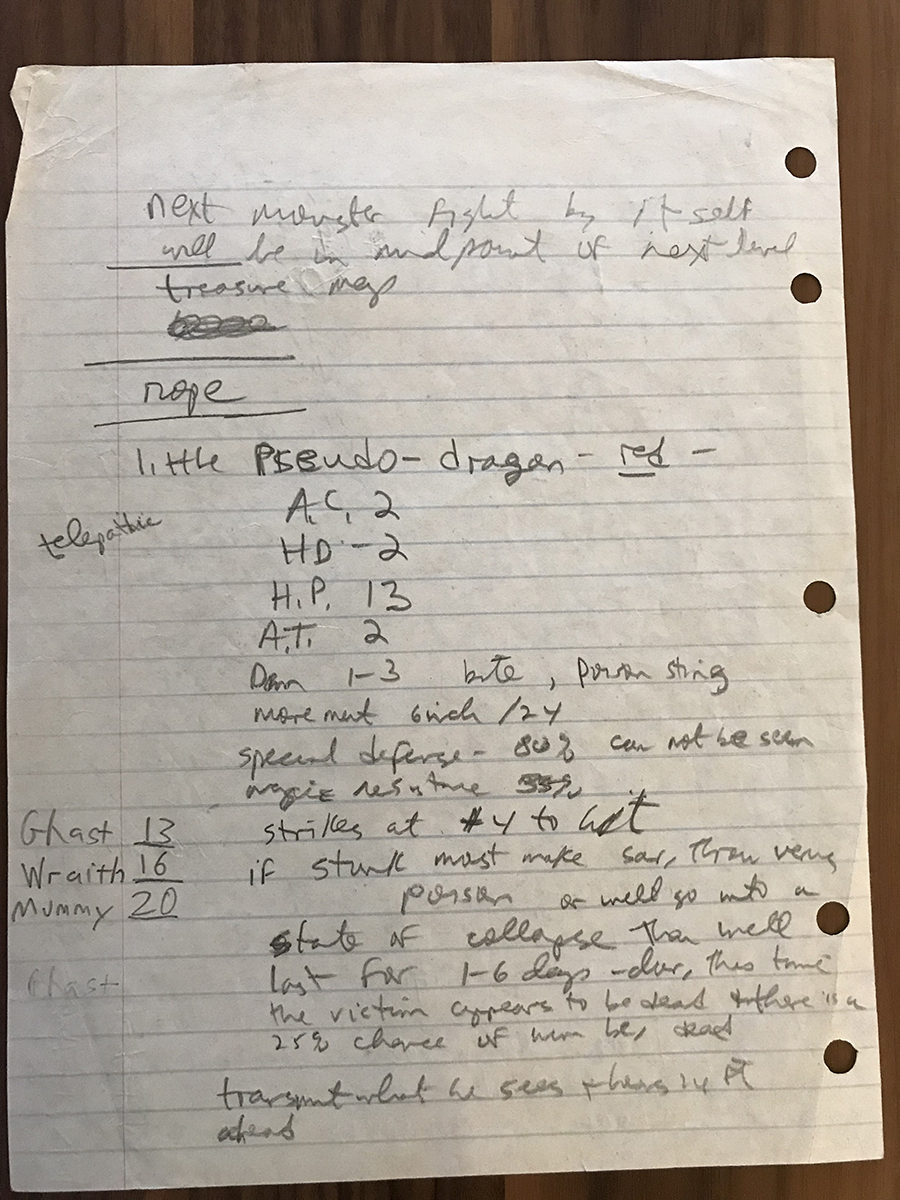 next monster fight by it self
will be in midpoint of next level
treasure map
rope
little Pseudo-dragon - red -
telepathic
A.C. 2
HD - 2
H.P. 13
A.T. 2
Dam 1-3 bite, poison sting
movement 6inch /24
special defense - 80% can not be seen
magic resistance 35%
Ghast 13
strikes at #4 to hit
Wraith 16
if stunk must make sav, throw
Mummy 20
poison or well go into a
state of collapse than well
last for 1-6 days - dur, this time
Ghast
the victim appears to be dead + there is a
25% chance of him be, dead
transmit what he sees + hears 24 ft
ahead